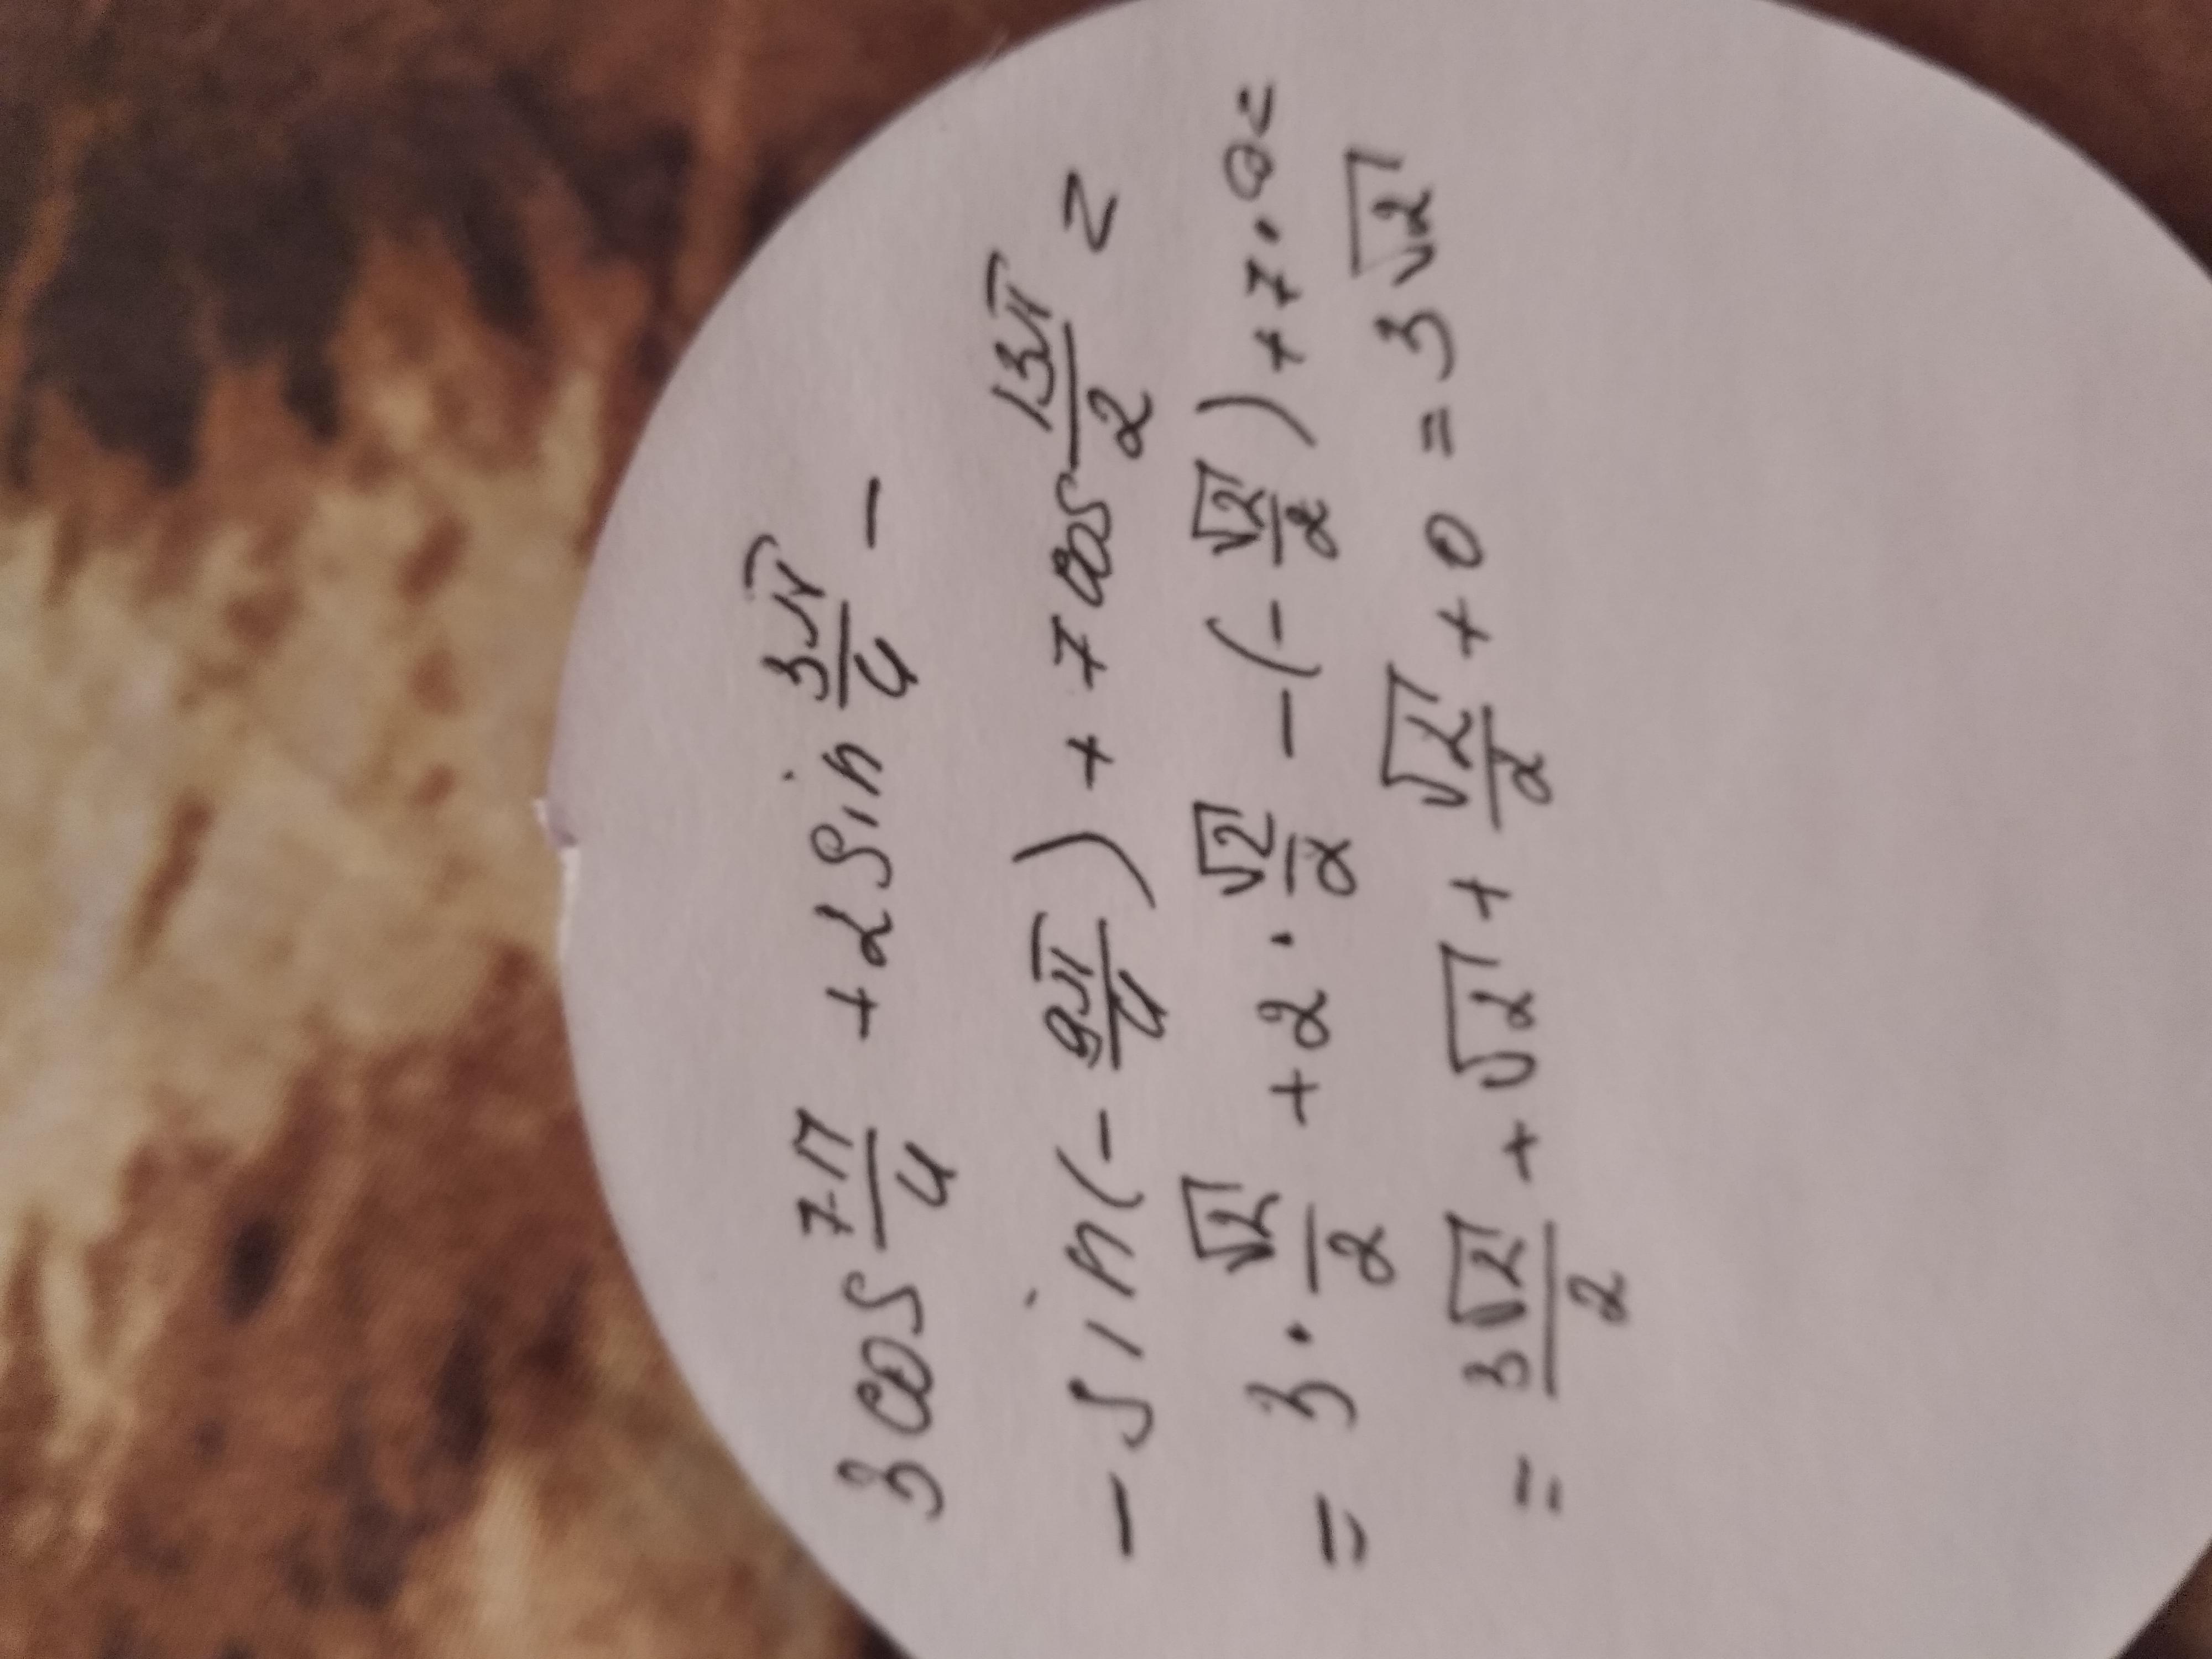 3 cos 7π/4 + 2 sin 3π/4 -
- sin(- 9π/4) + 7 cos 13π/2 =
= 3 · √2/2 + 2 · √2/2 - (- √2/2) + 7 · 0 =
= 3√2/2 + √2 + √2/2 + 0 = 3√2